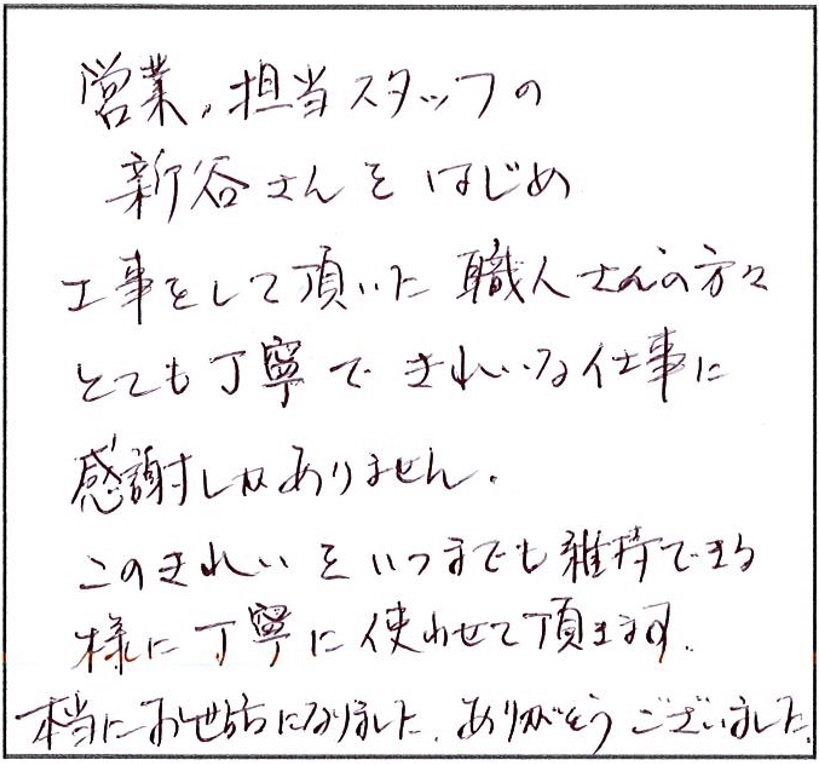 営業，担当スタッフの
新谷さんをはじめ
工事をして頂いた職人さんの方々
とても丁寧できれいな仕事に
感謝しかありません。
このきれいをいつまでも維持できる
様に丁寧に使わせて頂きます。
本当にお世話になりました。ありがとうございました。